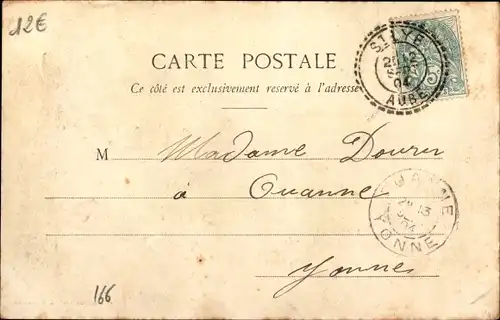 12€
CARTE POSTALE
Ce côté est exclusivement reservé à l'adresse
ST LYÉ
AUBE
M Madame Dourer
à Ouanne
Yonne
OUANNE
13
04
YONNE
166